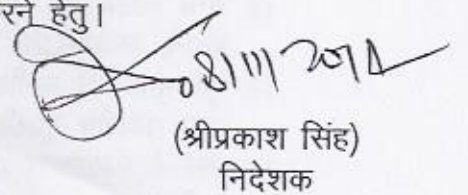 रने हेतु।
08/11/2012
(श्रीप्रकाश सिंह)
निदेशक